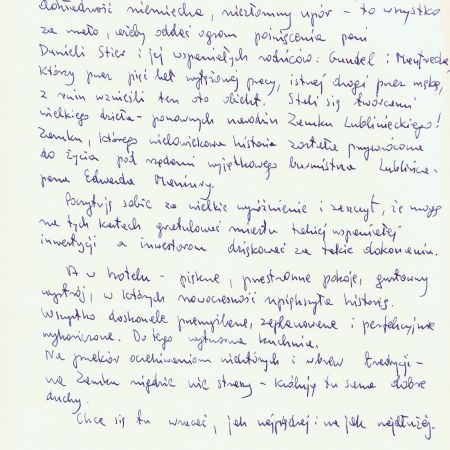 dokładność niemiecka, niezłomny upór - to wszystko
za mało, ażeby oddać ogrom poświęcenia pani
Danieli Stier i jej wspaniałych rodziców: Gundel i Manfreda,
którzy przez pięć lat wytężonej pracy, istnej drogi przez mękę,
z ruin wznieśli ten oto obiekt. Stali się twórcami
wielkiego dzieła - ponownych narodzin Zamku Lublinieckiego!
Zamku, którego wielowiekowa historia została przywrócona
do życia pod rządami wyjątkowego burmistrza Lublińca -
pana Edwarda Maniury.
Poczytuję sobie za wielkie wyróżnienie i zaszczyt, że mogę
na tych kartach gratulować miastu takiej wspaniałej
inwestycji a inwestorom dziękować za takie dokonanie.
A w hotelu - piękne, przestronne pokoje, gustowny
wystrój, w których nowoczesność upiększyła historię.
Wszystko doskonale przemyślane, zaplanowane i perfekcyjnie
wykończone. Do tego wytworna kuchnia.
Na przekór oczekiwaniom niektórych i wbrew tradycji -
na Zamku nigdzie nie straszy - królują tu same dobre
duchy.
Chce się tu wracać, jak najprędzej i na jak najdłużej.